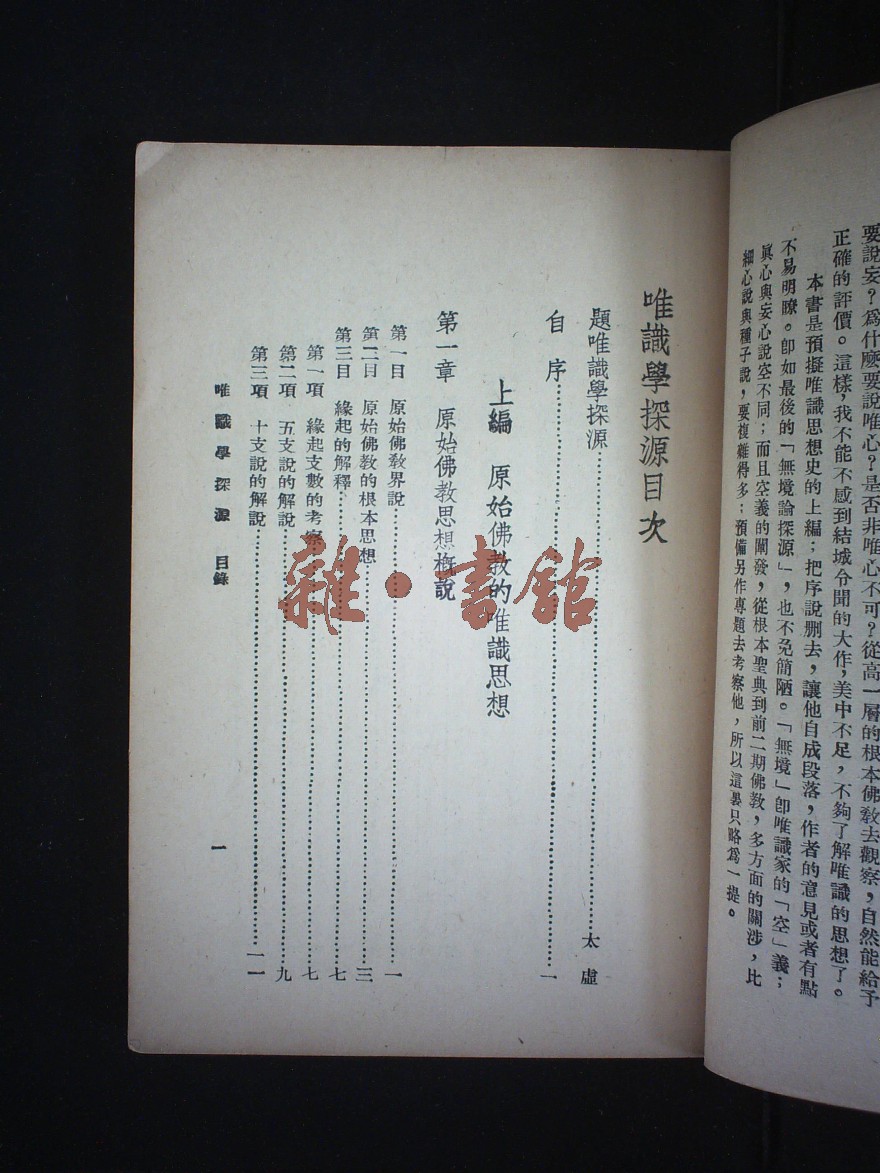 要說妄?爲什麼要說唯心?是否非唯心不可?從高一層的根本佛敎去觀察,自然能給予
正確的評價。這樣,我不能不感到結城分聞的大作,美中不足,不夠了解唯識的思想了。
本書是預擬唯識思想史的上編;把序說删去,讓他自成段落,作者的意見或者有點
不易明瞭。卽如最後的「無境論探源」,也不免簡陋。「無境」卽唯識家的「空」義;
眞心與妄心說空不同;而且空義的闡發,從根本聖典到前二期佛敎,多方面的關涉,比
細心說與種子說,要複雜得多;預備另作專題去考察他,所以這裏只略爲一提。
唯識學探源目次
題唯識學探源……太虛
自序……一
上編 原始佛敎的唯識思想
第一章 原始佛敎思想槪說
第一目 原始佛敎界說……一
第二目 原始佛敎的根本思想……三
第三目 緣起的解釋……七
第一項 緣起支數的考察……七
第二項 五支說的解說……九
第三項 十支說的解說……一一
唯識學探源 目錄
一
雜·書館